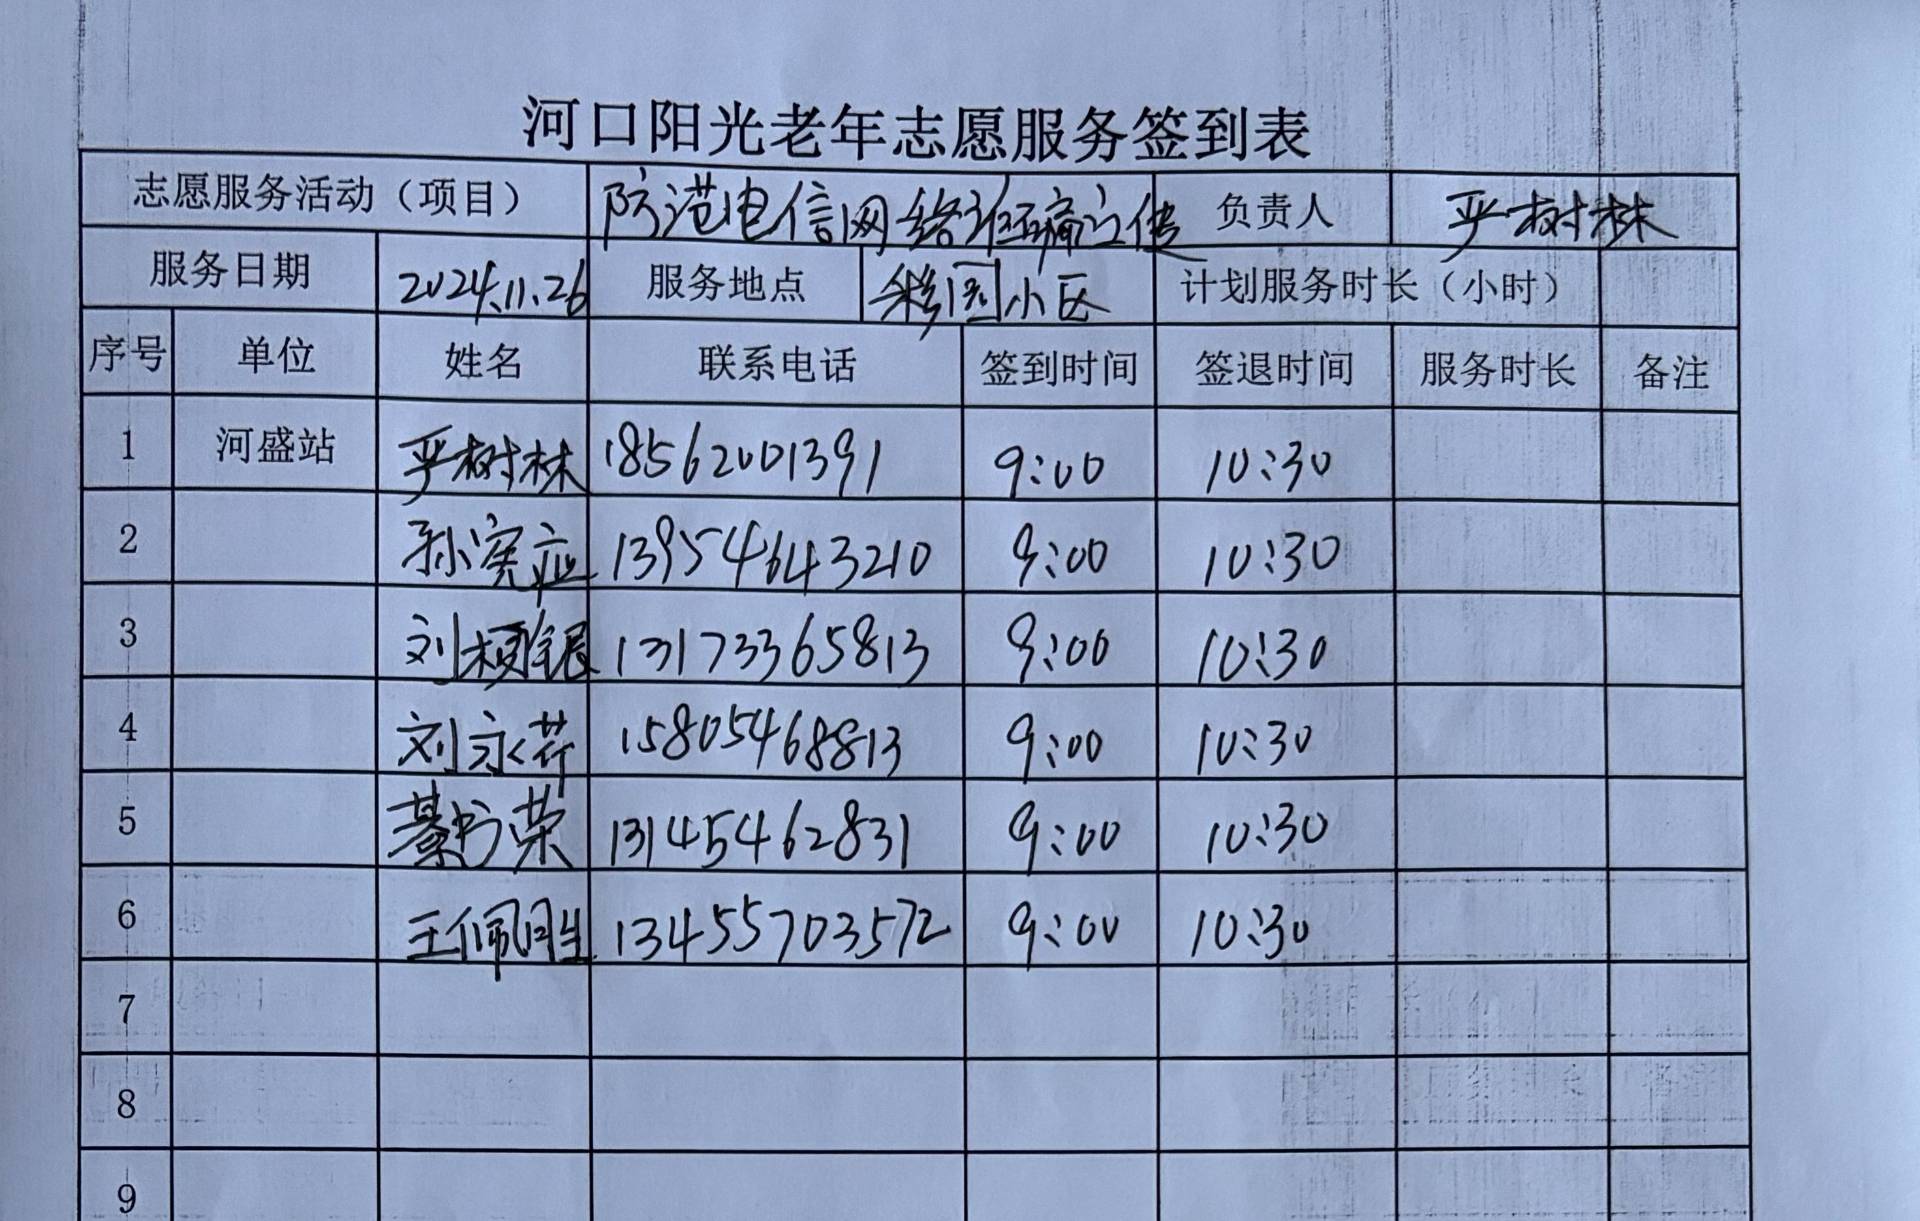 河口阳光老年志愿服务签到表
志愿服务活动（项目） 防范电信网络诈骗宣传 负责人 严树林
服务日期 2024.11.26 服务地点 彩园小区 计划服务时长（小时）
序号 单位 姓名 联系电话 签到时间 签退时间 服务时长 备注
1 河盛站 严树林 18562001391 9:00 10:30
2 孙宪 13954643210 9:00 10:30
3 刘 13173365813 9:00 10:30
4 刘永芹 15805468813 9:00 10:30
5 綦书荣 13145462831 9:00 10:30
6 王佩 13455703572 9:00 10:30
7
8
9